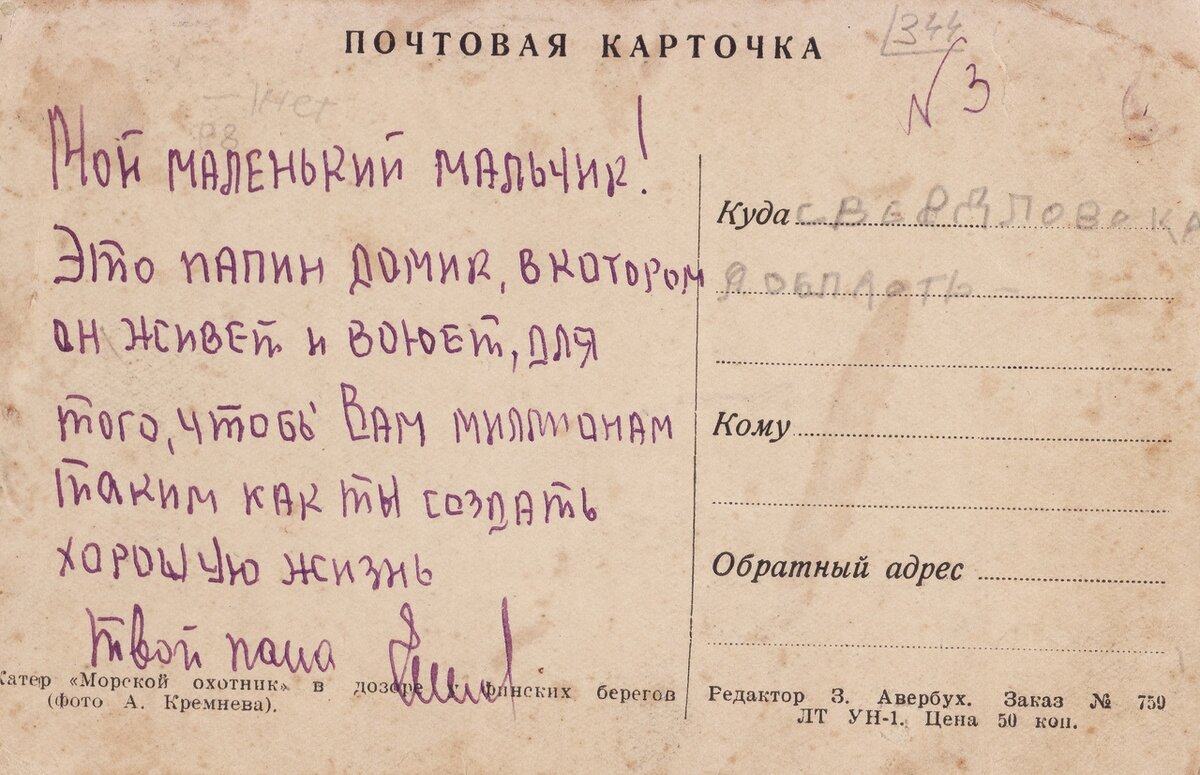 ПОЧТОВАЯ КАРТОЧКА
344
N 3
Мой маленький мальчик!
Это папин домик, в котором
он живет и воюет, для
того, чтобы Вам миллионам
таким как ты создать
хорошую жизнь
твой папа
Катер «Морской охотник» в дозоре у финских берегов
(фото А. Кремнева).
Куда СВЕРДЛОВСКА
Я ОБЛАСТЬ -
Кому
Обратный адрес
Редактор З. Авербух. Заказ № 759
ЛТ УН-1. Цена 50 коп.